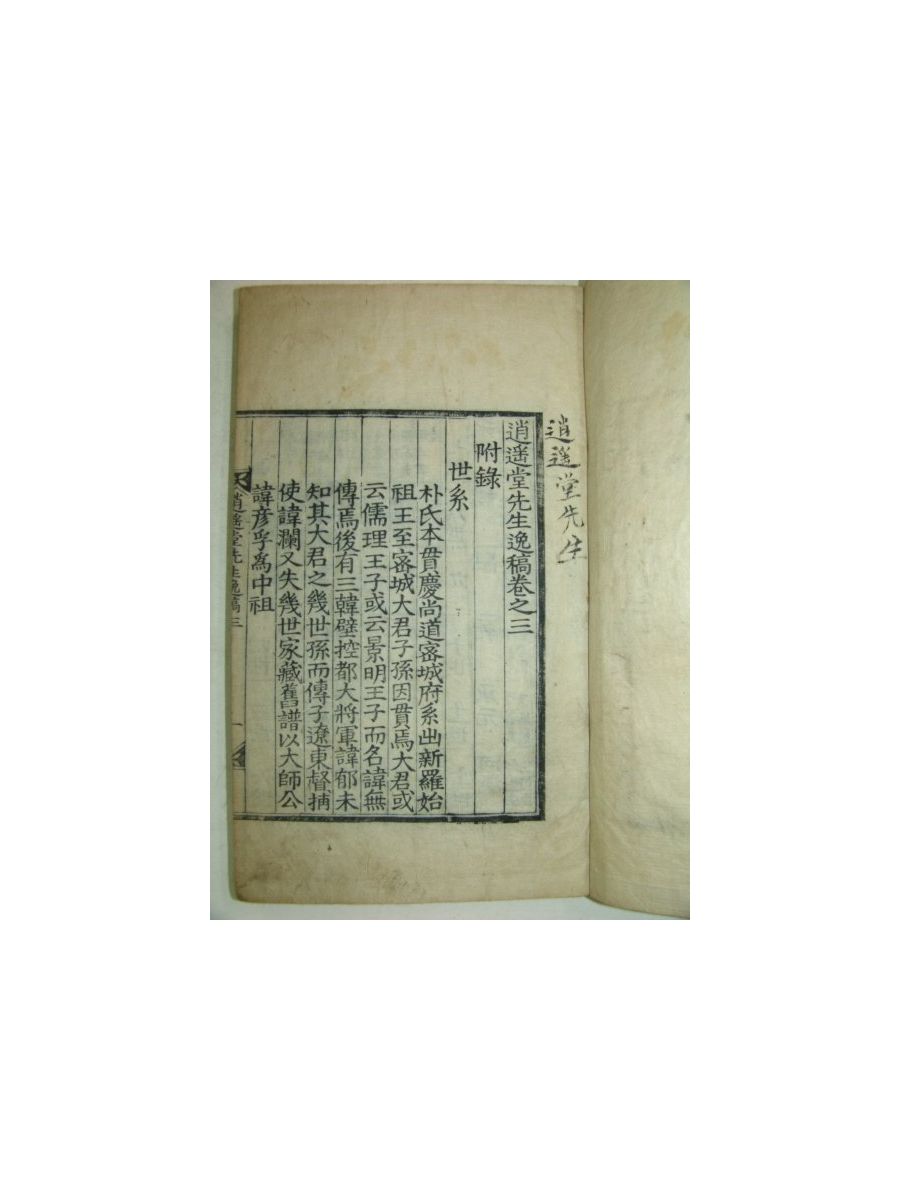 逍遥堂先生
逍遥堂先生逸稿卷之三
附錄
世系
朴氏本貫慶尚道密城府系出新羅始
祖王至密城大君子孫因貫焉大君或
云儒理王子或云景明王子而名諱無
傳焉後有三韓壁控都大將軍諱郁未
知其大君之幾世孫而傳子遼東督捕
使諱瀾又失幾世家藏舊譜以大師公
諱彦孚爲中祖
逍遥堂先生逸稿三
一